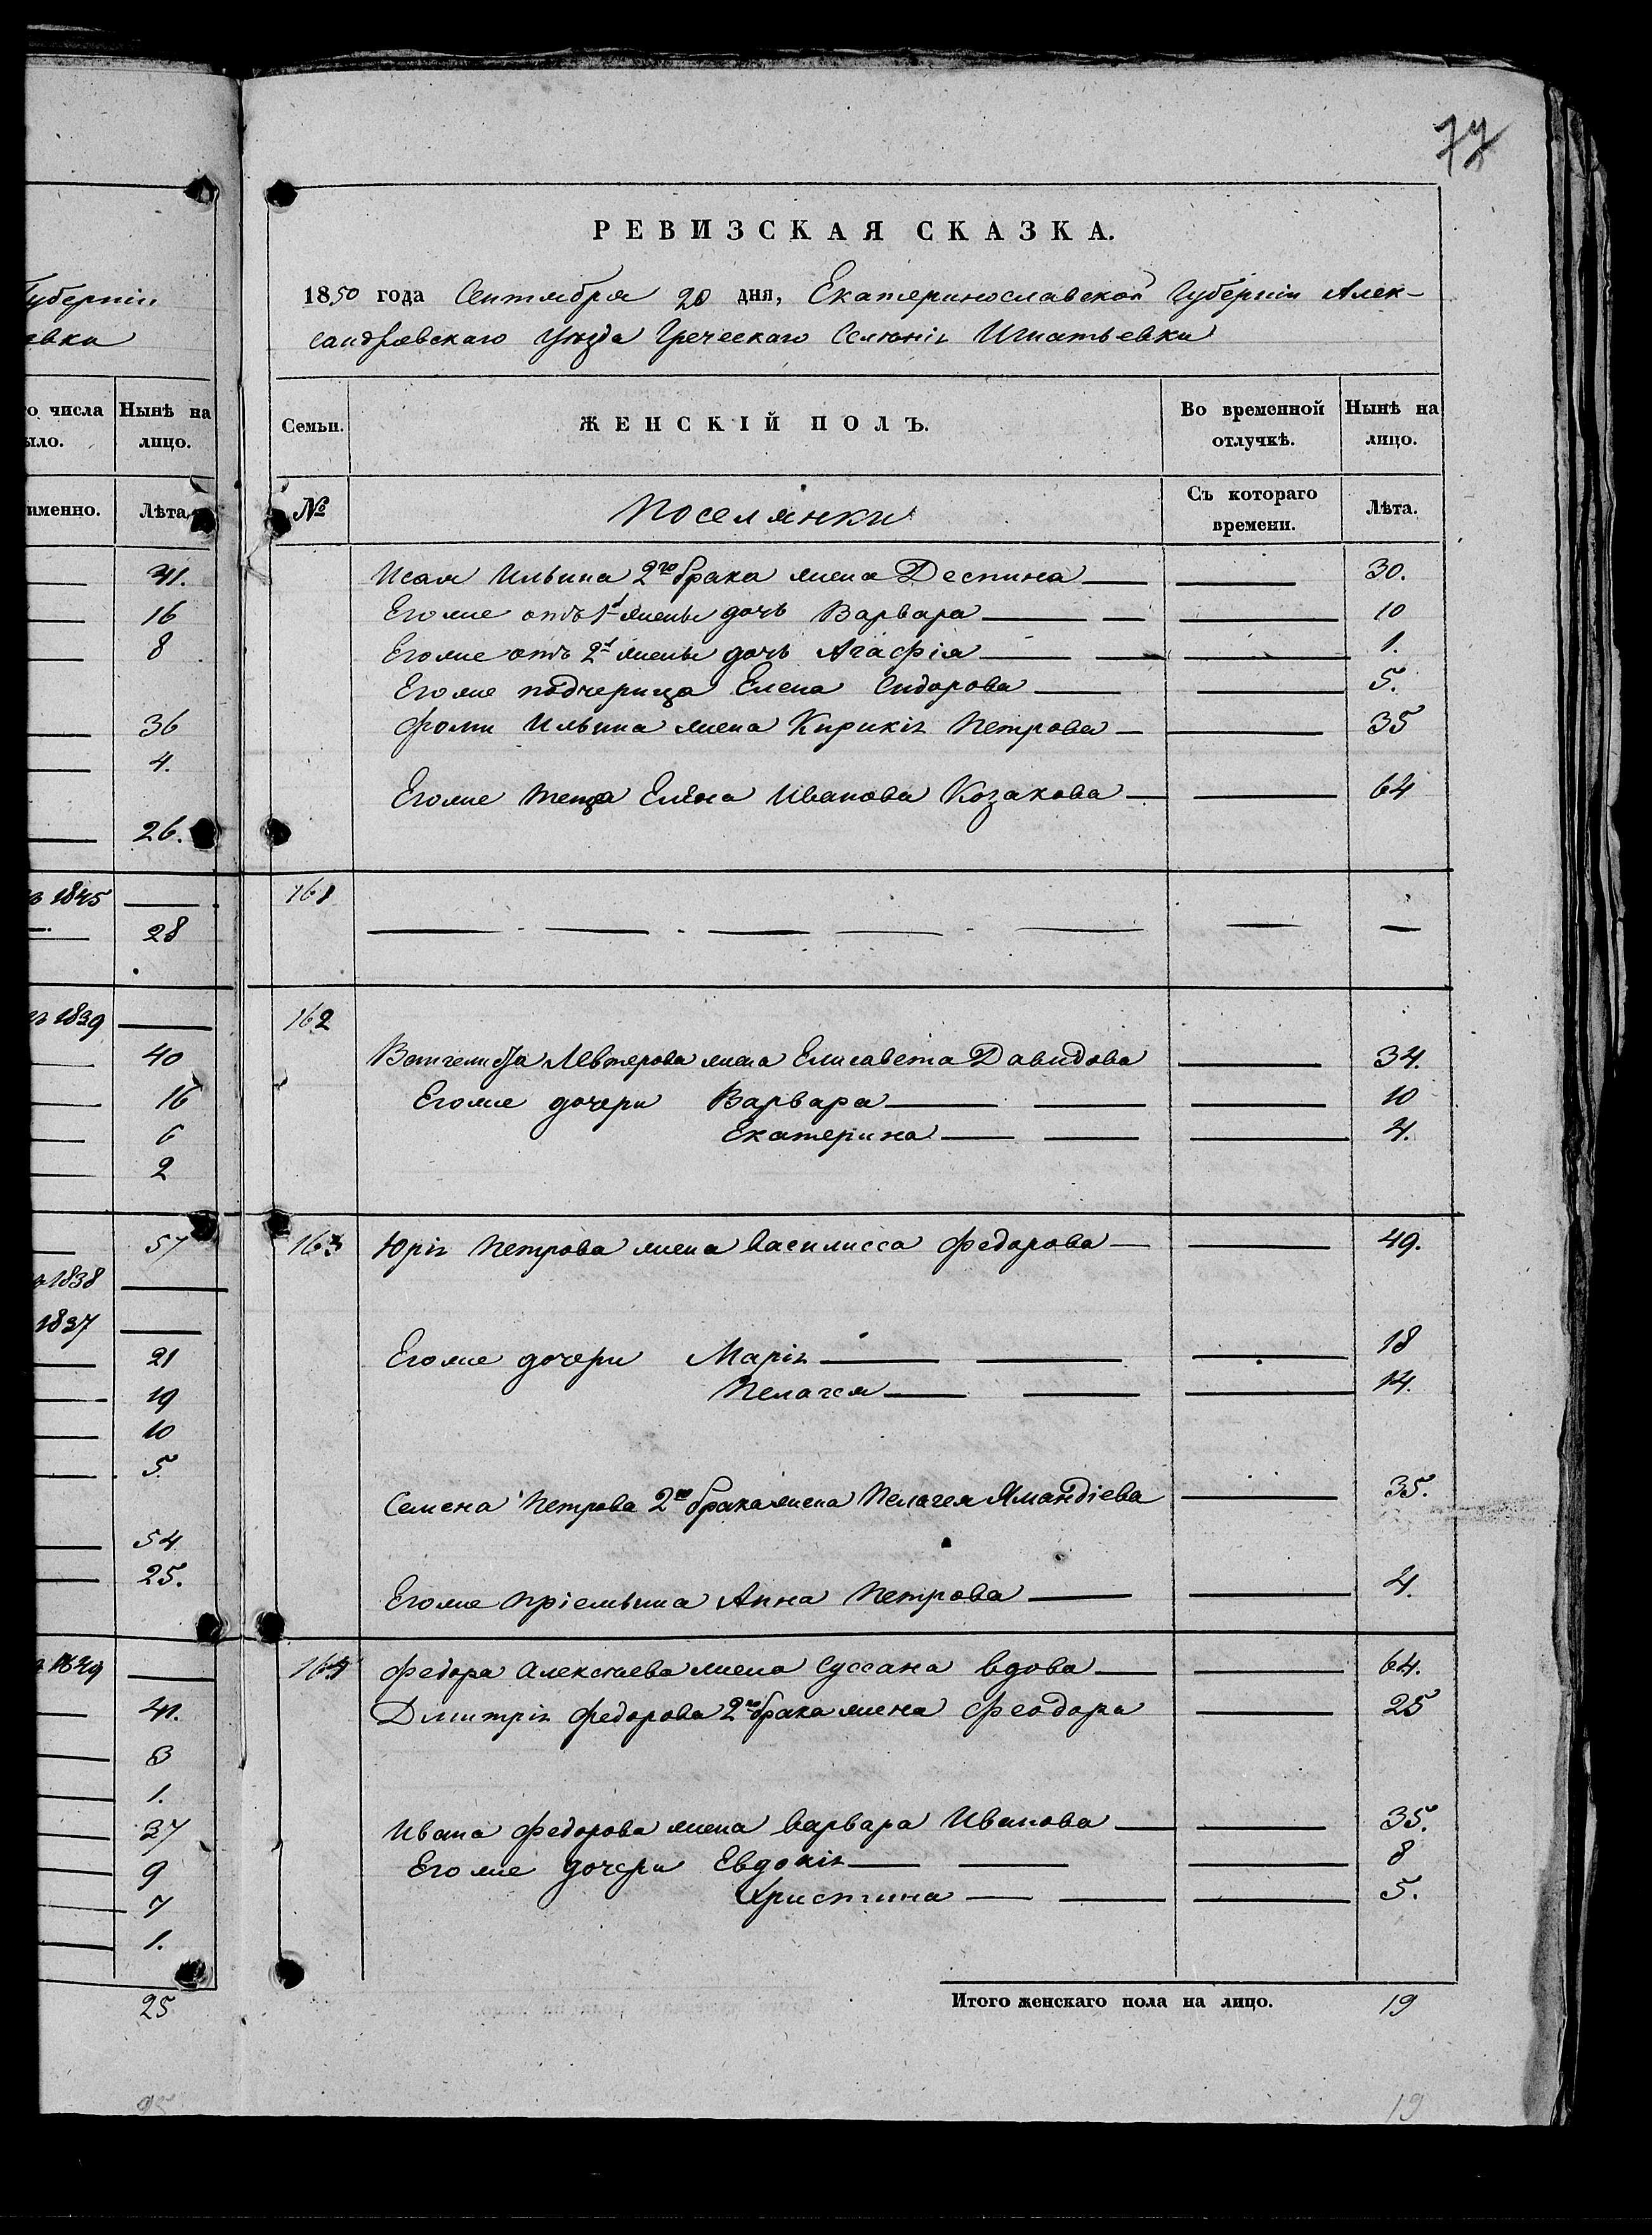 Губерніи
евки
го числа
было.
Нынѣ на
лицо.
именно.
Лѣта.
31.
16
8
36
4.
26.
1845
28
1839
40
16
6
2
57
1838
1837
21
19
10
5
54
25.
1849
41.
8
1.
37
9
7
1.
25
77
РЕВИЗСКАЯ СКАЗКА.
1850 года Сентября 20 дня, Екатеринославской Губерніи Алек-
сандровскаго Уѣзда Греческаго Селенія Игнатьевки
Семьи.
ЖЕНСКІЙ ПОЛЪ.
Во временной
отлучкѣ.
Нынѣ на
лицо.
№
Поселянки
Съ котораго
времени.
Лѣта.
Исая Ильина 2го брака жена Деспина 30.
Егоже отъ 1й жены дочь Варвара 10
Егоже отъ 2й жены дочь Агафія 1.
Егоже подчерица Елена Сидорова 5.
Фомы Ильина жена Кирикія Петрова 35
Егоже теща Елена Иванова Козакова 64
161
162
Левтерова жена Елисавета Давидова 34.
Егоже дочери Варвара 10
Екатерина 4.
163 Юрія Петрова жена Василисса Федорова 49.
Егоже дочери Марія 18
Пелагея 14.
Семена Петрова 2го брака жена Пелагея Ямандіева 35.
Егоже пріемышна Анна Петрова 4.
164 Федора Алексѣева жена Суссана вдова 64.
Дмитрія Федорова 2го брака жена Феодора 25
Ивана Федорова жена Варвара Иванова 35.
Егоже дочери Евдокія 8
Христина 5.
Итого женскаго пола на лицо. 19
19